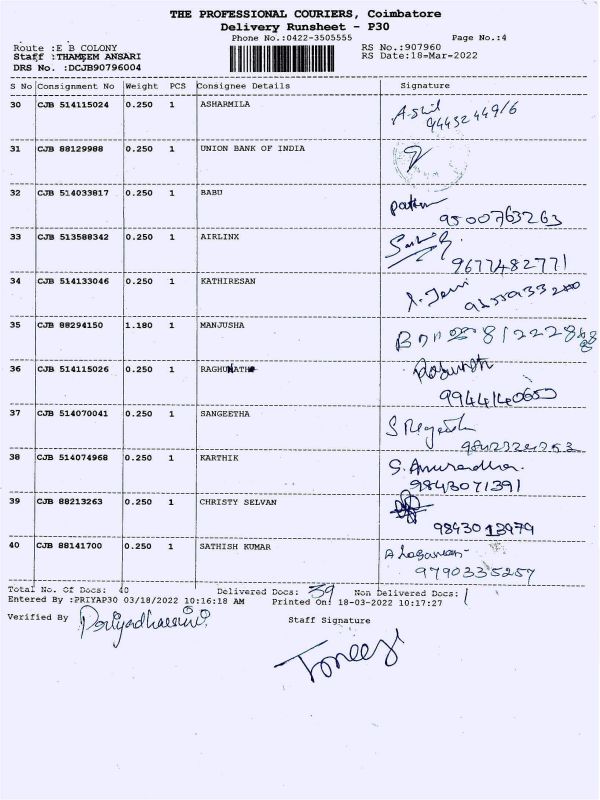 THE PROFESSIONAL COURIERS, Coimbatore
Delivery Runsheet - P30
Phone No.:0422-3505555 Page No.:4
Route :E B COLONY RS No.:907960
Staff :THAMEEM ANSARI RS Date:18-Mar-2022
DRS No. :DCJB90796004
S No Consignment No Weight PCS Consignee Details Signature
30 CJB 514115024 0.250 1 ASHARMILA
31 CJB 88129988 0.250 1 UNION BANK OF INDIA
32 CJB 514033817 0.250 1 BABU
9500763263
33 CJB 513588342 0.250 1 AIRLINX
9677482771
34 CJB 514133046 0.250 1 KATHIRESAN
35 CJB 88294150 1.180 1 MANJUSHA
36 CJB 514115026 0.250 1 RAGHUNATH
9944140650
37 CJB 514070041 0.250 1 SANGEETHA
38 CJB 514074968 0.250 1 KARTHIK S. Anuradha.
9843071391
39 CJB 88213263 0.250 1 CHRISTY SELVAN
9843013979
40 CJB 88141700 0.250 1 SATHISH KUMAR
9790335257
Total No. Of Docs: 40 Delivered Docs: 39 Non Delivered Docs: 1
Entered By :PRIYAP30 03/18/2022 10:16:18 AM Printed On: 18-03-2022 10:17:27
Verified By Staff Signature